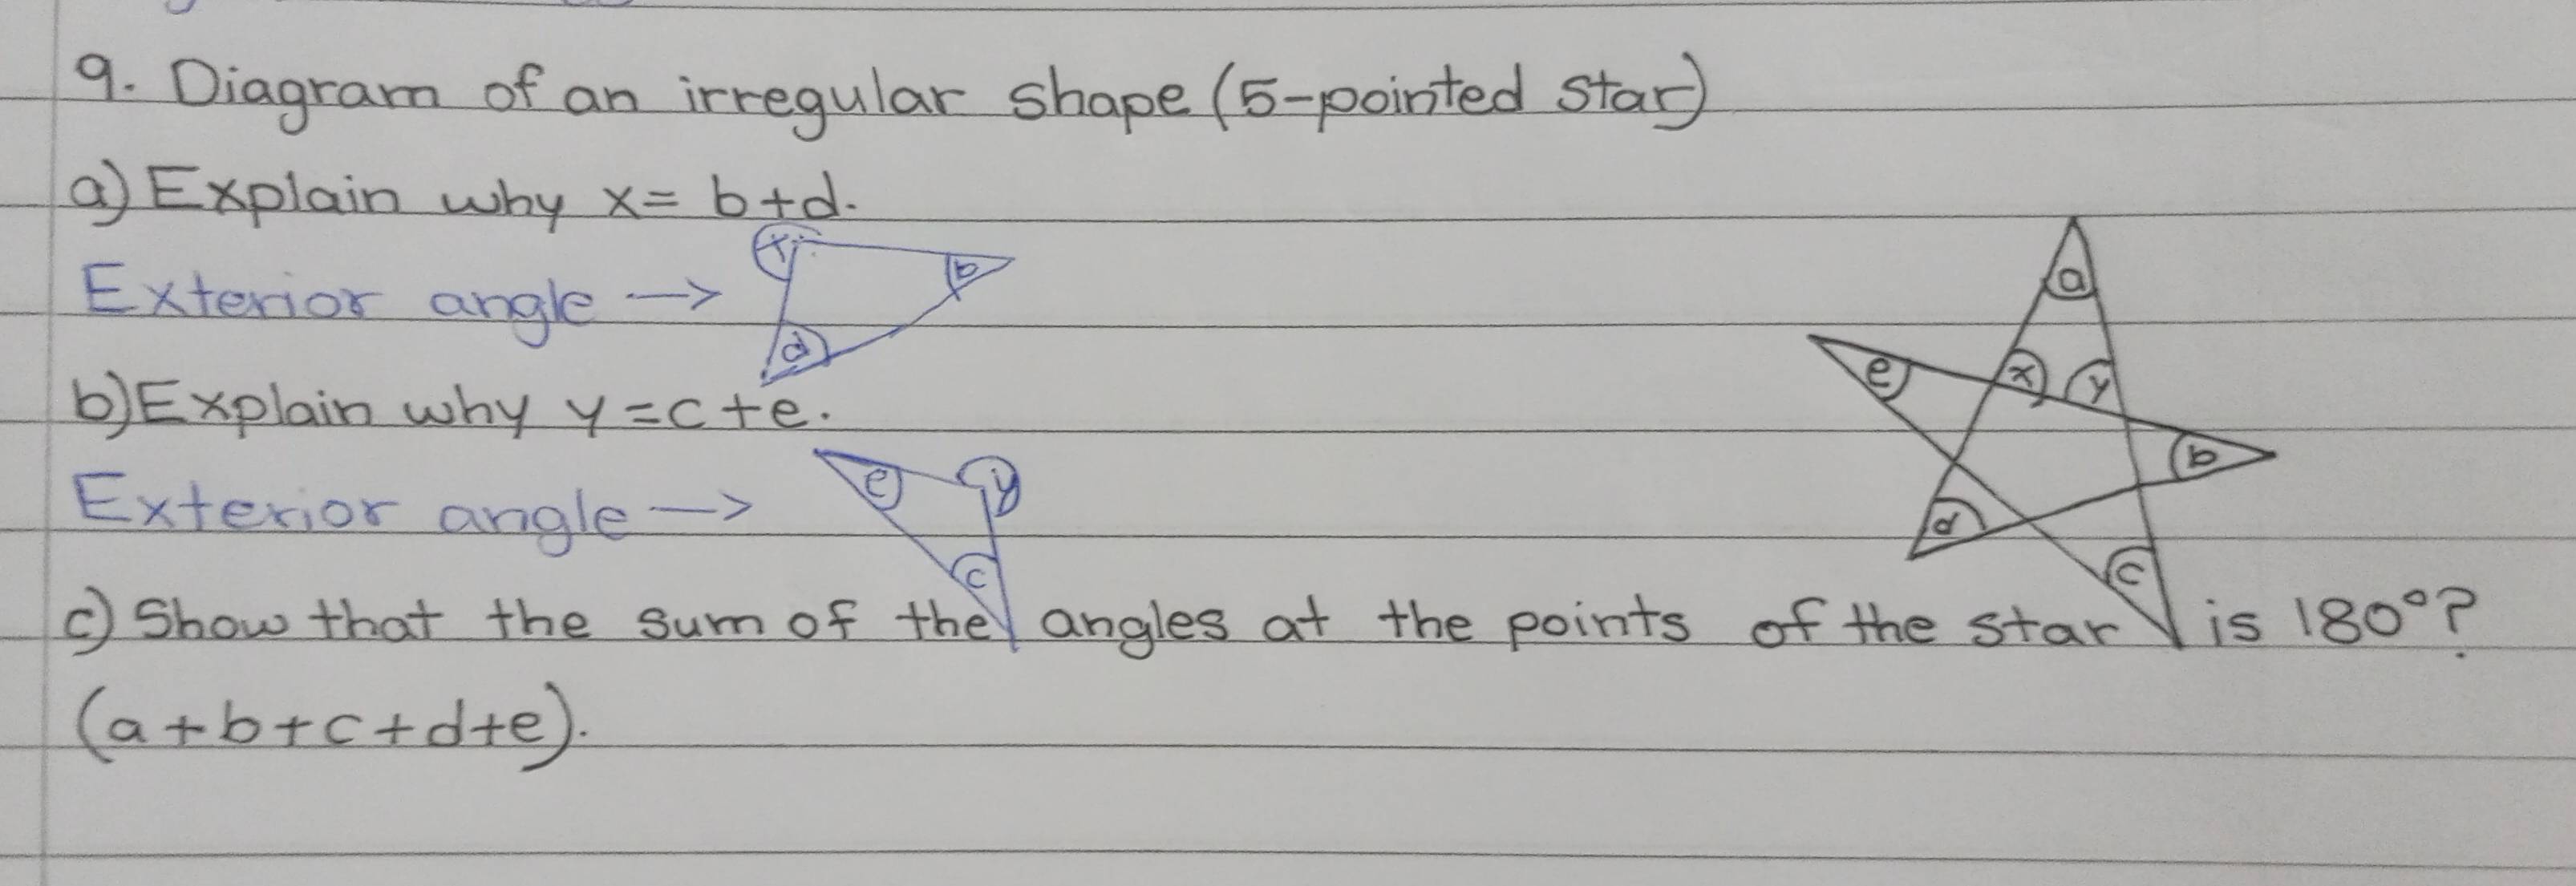 9. Diagram of an irregular shape (5-pointed star)
a) Explain why x = b+d.
Exterior angle → x b d
b) Explain why y = c+e.
Exterior angle → e y c
c) Show that the sum of the angles at the points of the star is 180°?
(a+b+c+d+e).
a
e x y
b
d
c